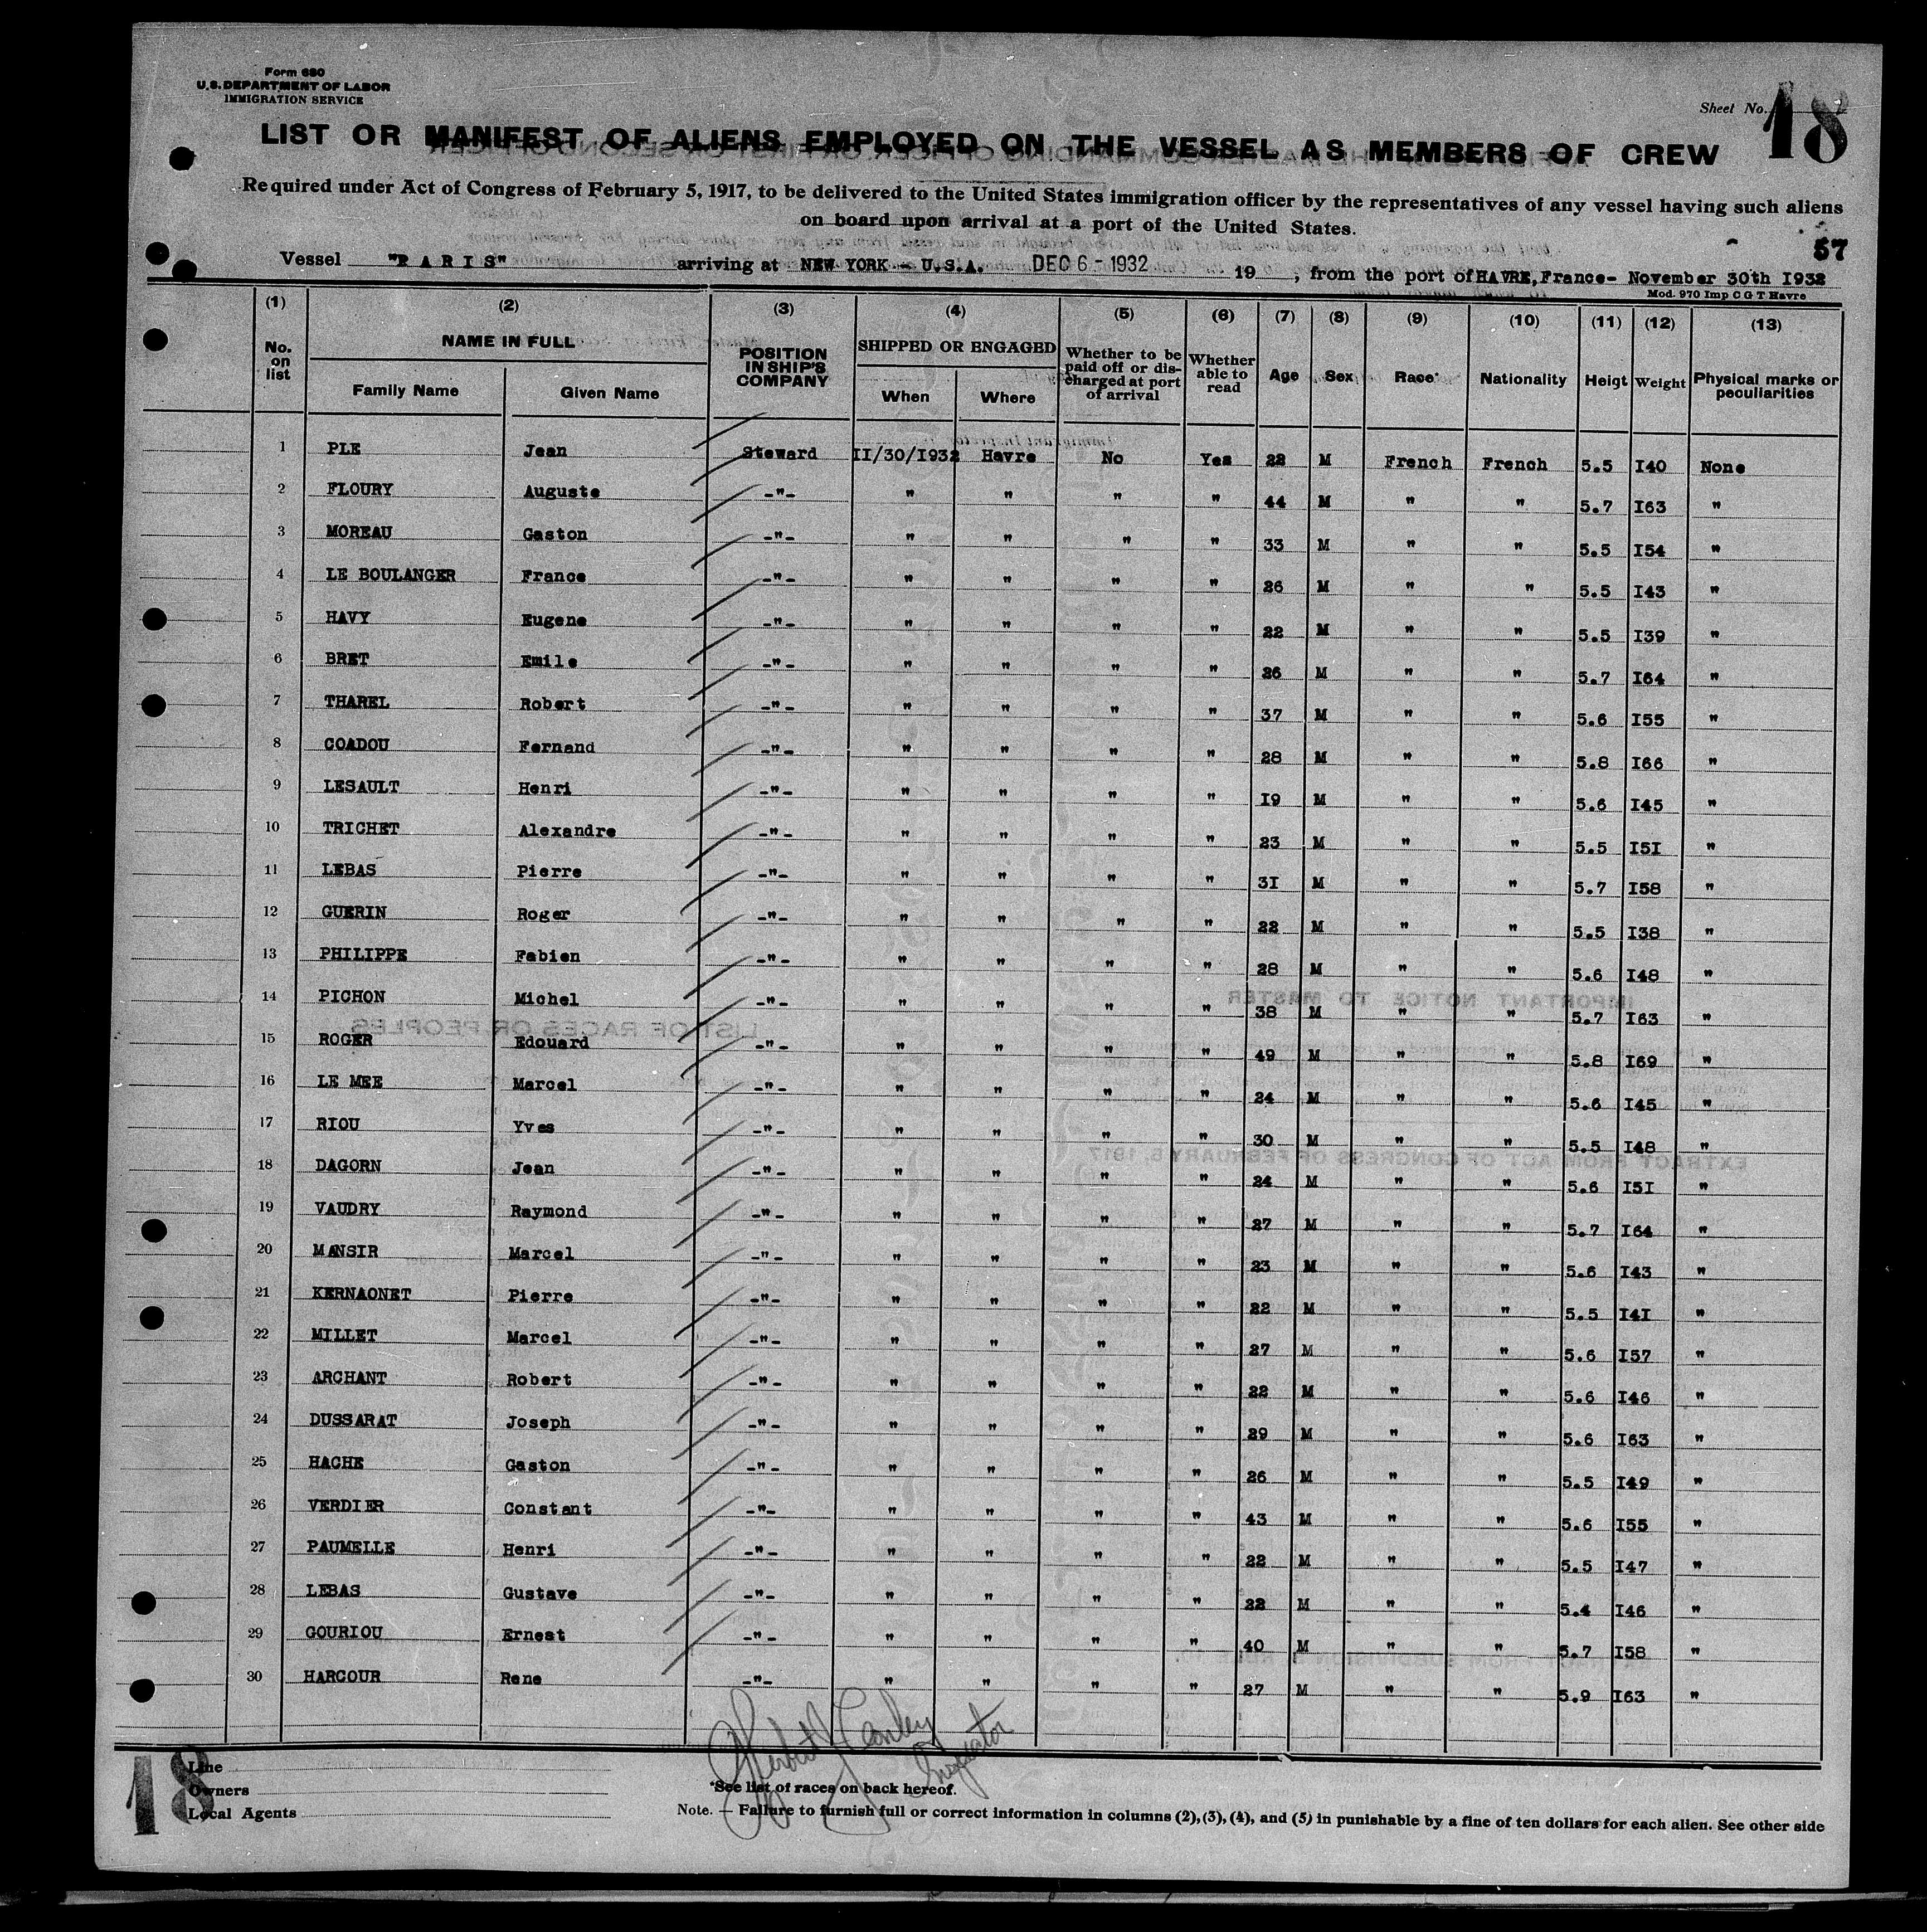 Form 680
U.S. DEPARTMENT OF LABOR
IMMIGRATION SERVICE
Sheet No. 18
LIST OR MANIFEST OF ALIENS EMPLOYED ON THE VESSEL AS MEMBERS OF CREW
Required under Act of Congress of February 5, 1917, to be delivered to the United States immigration officer by the representatives of any vessel having such aliens
on board upon arrival at a port of the United States.
57
Vessel "PARIS" arriving at NEW YORK - U.S.A. DEC 6 - 1932 19 , from the port of HAVRE, France- November 30th I932
Mod. 970 Imp C G T Havre
(1) (2) (3) (4) (5) (6) (7) (8) (9) (10) (11) (12) (13)
No. on list NAME IN FULL Family Name Given Name POSITION IN SHIP'S COMPANY SHIPPED OR ENGAGED When Where Whether to be paid off or discharged at port of arrival Whether able to read Age Sex Race* Nationality Heigt Weight Physical marks or peculiarities
1 PLE Jean Steward II/30/I932 Havre No Yes 22 M French French 5.5 I40 None
2 FLOURY Auguste -"- " " " " 44 M " " 5.7 I63 "
3 MOREAU Gaston -"- " " " " 33 M " " 5.5 I54 "
4 LE BOULANGER France -"- " " " " 26 M " " 5.5 I43 "
5 HAVY Eugene -"- " " " " 22 M " " 5.5 I39 "
6 BRET Emile -"- " " " " 26 M " " 5.7 I64 "
7 THAREL Robert -"- " " " " 37 M " " 5.6 I55 "
8 COADOU Fernand -"- " " " " 28 M " " 5.8 I66 "
9 LESAULT Henri -"- " " " " I9 M " " 5.6 I45 "
10 TRICHET Alexandre -"- " " " " 23 M " " 5.5 I5I "
11 LEBAS Pierre -"- " " " " 3I M " " 5.7 I58 "
12 GUERIN Roger -"- " " " " 22 M " " 5.5 I38 "
13 PHILIPPE Fabien -"- " " " " 28 M " " 5.6 I48 "
14 PICHON Michel -"- " " " " 38 M " " 5.7 I63 "
15 ROGER Edouard -"- " " " " 49 M " " 5.8 I69 "
16 LE MEE Marcel -"- " " " " 24 M " " 5.6 I45 "
17 RIOU Yves -"- " " " " 30 M " " 5.5 I48 "
18 DAGORN Jean -"- " " " " 24 M " " 5.6 I5I "
19 VAUDRY Raymond -"- " " " " 27 M " " 5.7 I64 "
20 MANSIR Marcel -"- " " " " 23 M " " 5.6 I43 "
21 KERNAONET Pierre -"- " " " " 22 M " " 5.5 I4I "
22 MILLET Marcel -"- " " " " 27 M " " 5.6 I57 "
23 ARCHANT Robert -"- " " " " 22 M " " 5.6 I46 "
24 DUSSARAT Joseph -"- " " " " 29 M " " 5.6 I63 "
25 HACHE Gaston -"- " " " " 26 M " " 5.5 I49 "
26 VERDIER Constant -"- " " " " 43 M " " 5.6 I55 "
27 PAUMELLE Henri -"- " " " " 22 M " " 5.5 I47 "
28 LEBAS Gustave -"- " " " " 22 M " " 5.4 I46 "
29 GOURIOU Ernest -"- " " " " 40 M " " 5.7 I58 "
30 HARCOUR Rene -"- " " " " 27 M " " 5.9 I63 "
Inspector
18
Line
Owners
Local Agents
*See list of races on back hereof.
Note. — Failure to furnish full or correct information in columns (2), (3), (4), and (5) in punishable by a fine of ten dollars for each alien. See other side